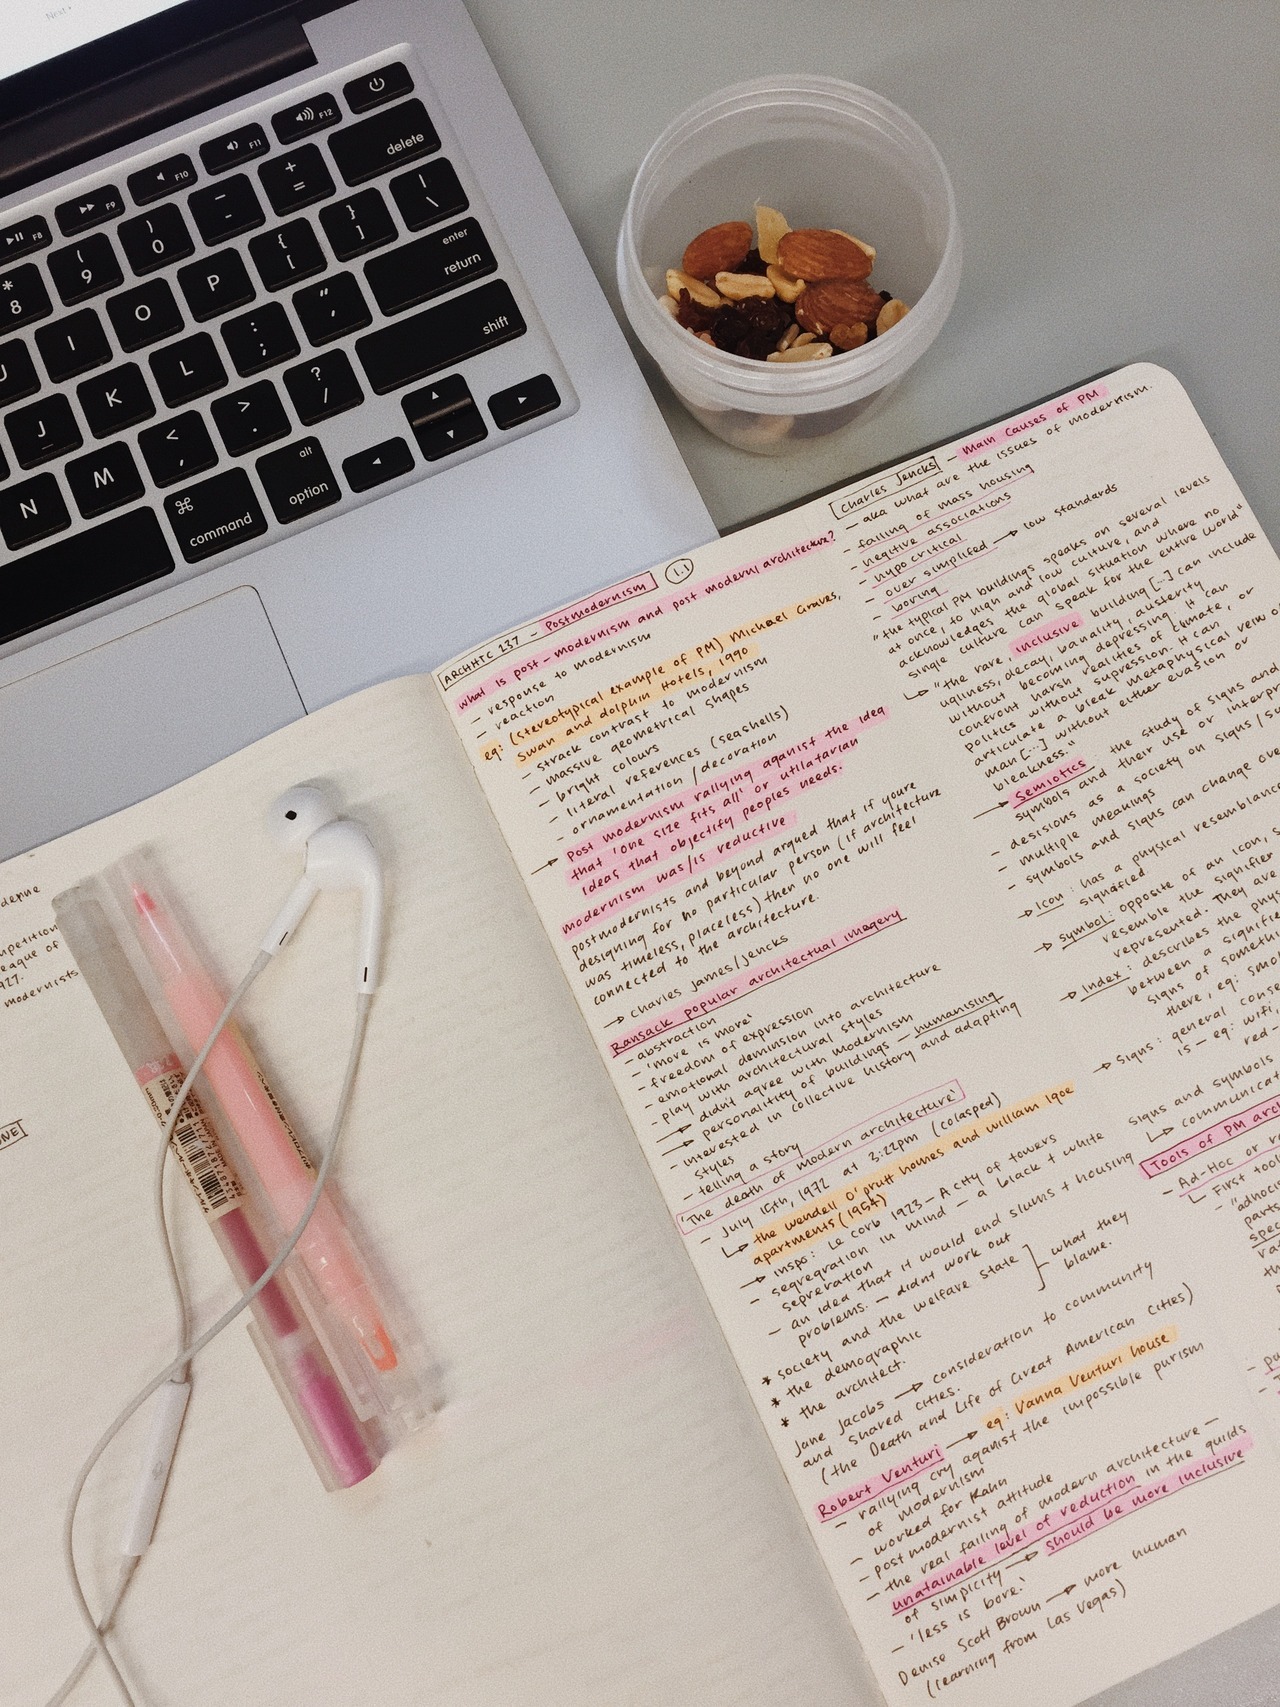 Next
F8
F9
F10
F11
F12
delete
*
8
(
9
)
0
_
-
+
=
U
I
O
P
{
[
}
]
|
\
enter
return
J
K
L
:
;
"
'
shift
N
M
<
,
>
.
?
/
⌘
command
alt
option
modernists
ARCHHTC 237 - Postmodernism 1.1
what is post-modernism and post modern architecture?
- response to modernism
- reaction
eg: (stereotypical example of PM) Michael Graves,
Swan and dolphin Hotels, 1990
- strack contrast to modernism
- massive geometrical shapes
- bright colours
- literal references (seashells)
- ornamentation/decoration
→ Post modernism rallying aganist the idea
that 'one size fits all' or utilatarian
ideas that objectify peoples needs.
modernism was/is reductive
postmodernists and beyond argued that if youre
designing for no particular person (if architecture
was timeless, placeless) then no one will feel
connected to the architecture.
→ Charles James/Jencks
Ransack popular architectual imagery
- abstraction
- 'more is more'
- freedom of expression
- emotional deminsion into architecture
- play with architectural styles
→ didn't agree with modernism
→ personality of buildings - humanising
- interested in collective history and adapting
styles
- telling a story
'The death of modern architecture'
- July 15th, 1972 at 3:22pm (colasped)
↳ the wendell O' pruit homes and william Igoe
apartments (1954)
→ inspo: Le corb 1923 - A city of towers
- segregration in mind - a black + white
sepreration
- an idea that it would end slums + housing
problems. - didnt work out
* society and the welfare state } what they
* the demographic blame.
* the architect.
Jane Jacobs → consideration to community
and shared cities.
(the Death and Life of Great American Cities)
Robert Venturi → eg: Vanna Venturi house
- rallying cry aganist the impossible purism
of modernism
- worked for Kahn
- postmodernist attitude
- the real failing of modern architecture -
unatainable level of reduction in the guilds
of simplicity → should be more inclusive
- 'less is bore.'
Denise Scott Brown → more human
(learning from Las Vegas)
Charles Jencks - Main Causes of PM
- aka what are the issues of modernism.
- failing of mass housing
- negitive associations
- hypo critical
- over simplified → low standards
- boring
"the typical PM buildings speaks on several levels
at once, to high and low culture, and
acknowledges the global situation where no
single culture can speak for the entire world"
↳ "the rare, inclusive building [...] can include
ugliness, decay, banality, austerity
without becoming depressing. It can
confront harsh realities of climate, or
politics without supression. It can
articulate a bleak metaphysical veiw of
man [...] without either evasion or
bleakness."
→ Semiotics the study of signs and
symbols and their use or interpr
- desisions as a society on signs / su
- multiple meanings
- symbols and signs can change ove
→ Icon: has a physical resemblance
signified.
→ symbol: opposite of an icon, s
resemble the signifier
represented. They are
→ Index: describes the phys
between a signifie
signs of somethin
there, eg: smo
→ Signs: general conse
is - eg: wifi,
red -
Signs and symbols
↳ communicat
Tools of PM arc
- Ad-Hoc or r
↳ First tool
- "adhocis
parts
spec